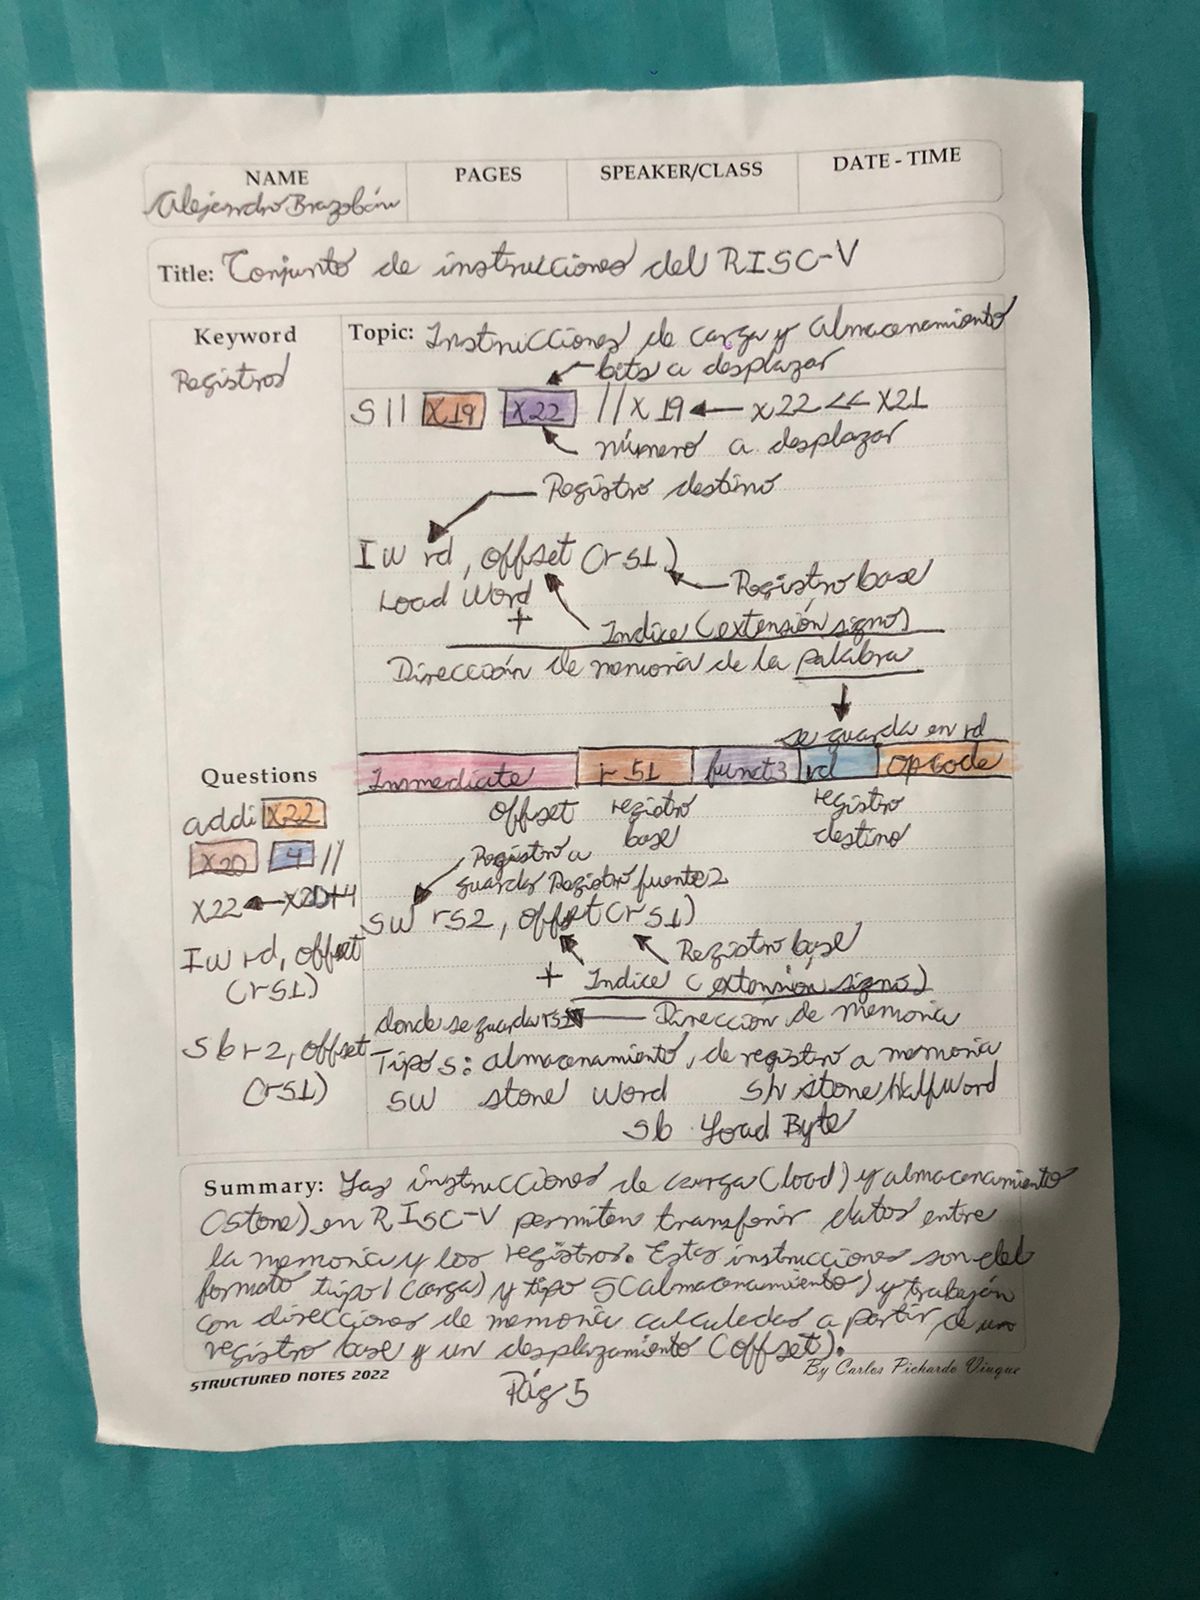 NAME PAGES SPEAKER/CLASS DATE - TIME
Alejandro Brazobán
Title: Conjunto de instrucciones del RISC-V
Keyword
Registros
Topic: Instrucciones de carga y almacenamiento
bits a desplazar
Sll X19 X22 //X19 ← x22 << X21
número a desplazar
Registro destino
Iw rd, offset (rs1)
Load Word
Registro base
+ Indice (extensión signo)
Dirección de memoria de la palabra
se guarda en rd
Immediate rs1 funct3 rd Opcode
offset registro base registro destino
Questions
addi X22
X20 4 //
X22 ← X20+4
Iw rd, offset
(rs1)
Sb r2, offset
(rs1)
Registro a
guarda Registro fuente2
sw rs2, offset (rs1)
Registro base
+ Indice (extensión signo)
donde se guarda rs2 ← Dirección de memoria
Tipo s: almacenamiento, de registro a memoria
sw stone Word Sh stone HalfWord
sb Load Byte
Summary: Las instrucciones de carga (load) y almacenamiento
(stone) en RISC-V permiten transferir datos entre
la memoria y los registros. Estas instrucciones son del
formato tipo I (carga) y tipo S (almacenamiento) y trabajan
con direcciones de memoria calculadas a partir de un
registro base y un desplazamiento (offset).
STRUCTURED NOTES 2022 By Carlos Pichardo Viuque
Pág 5